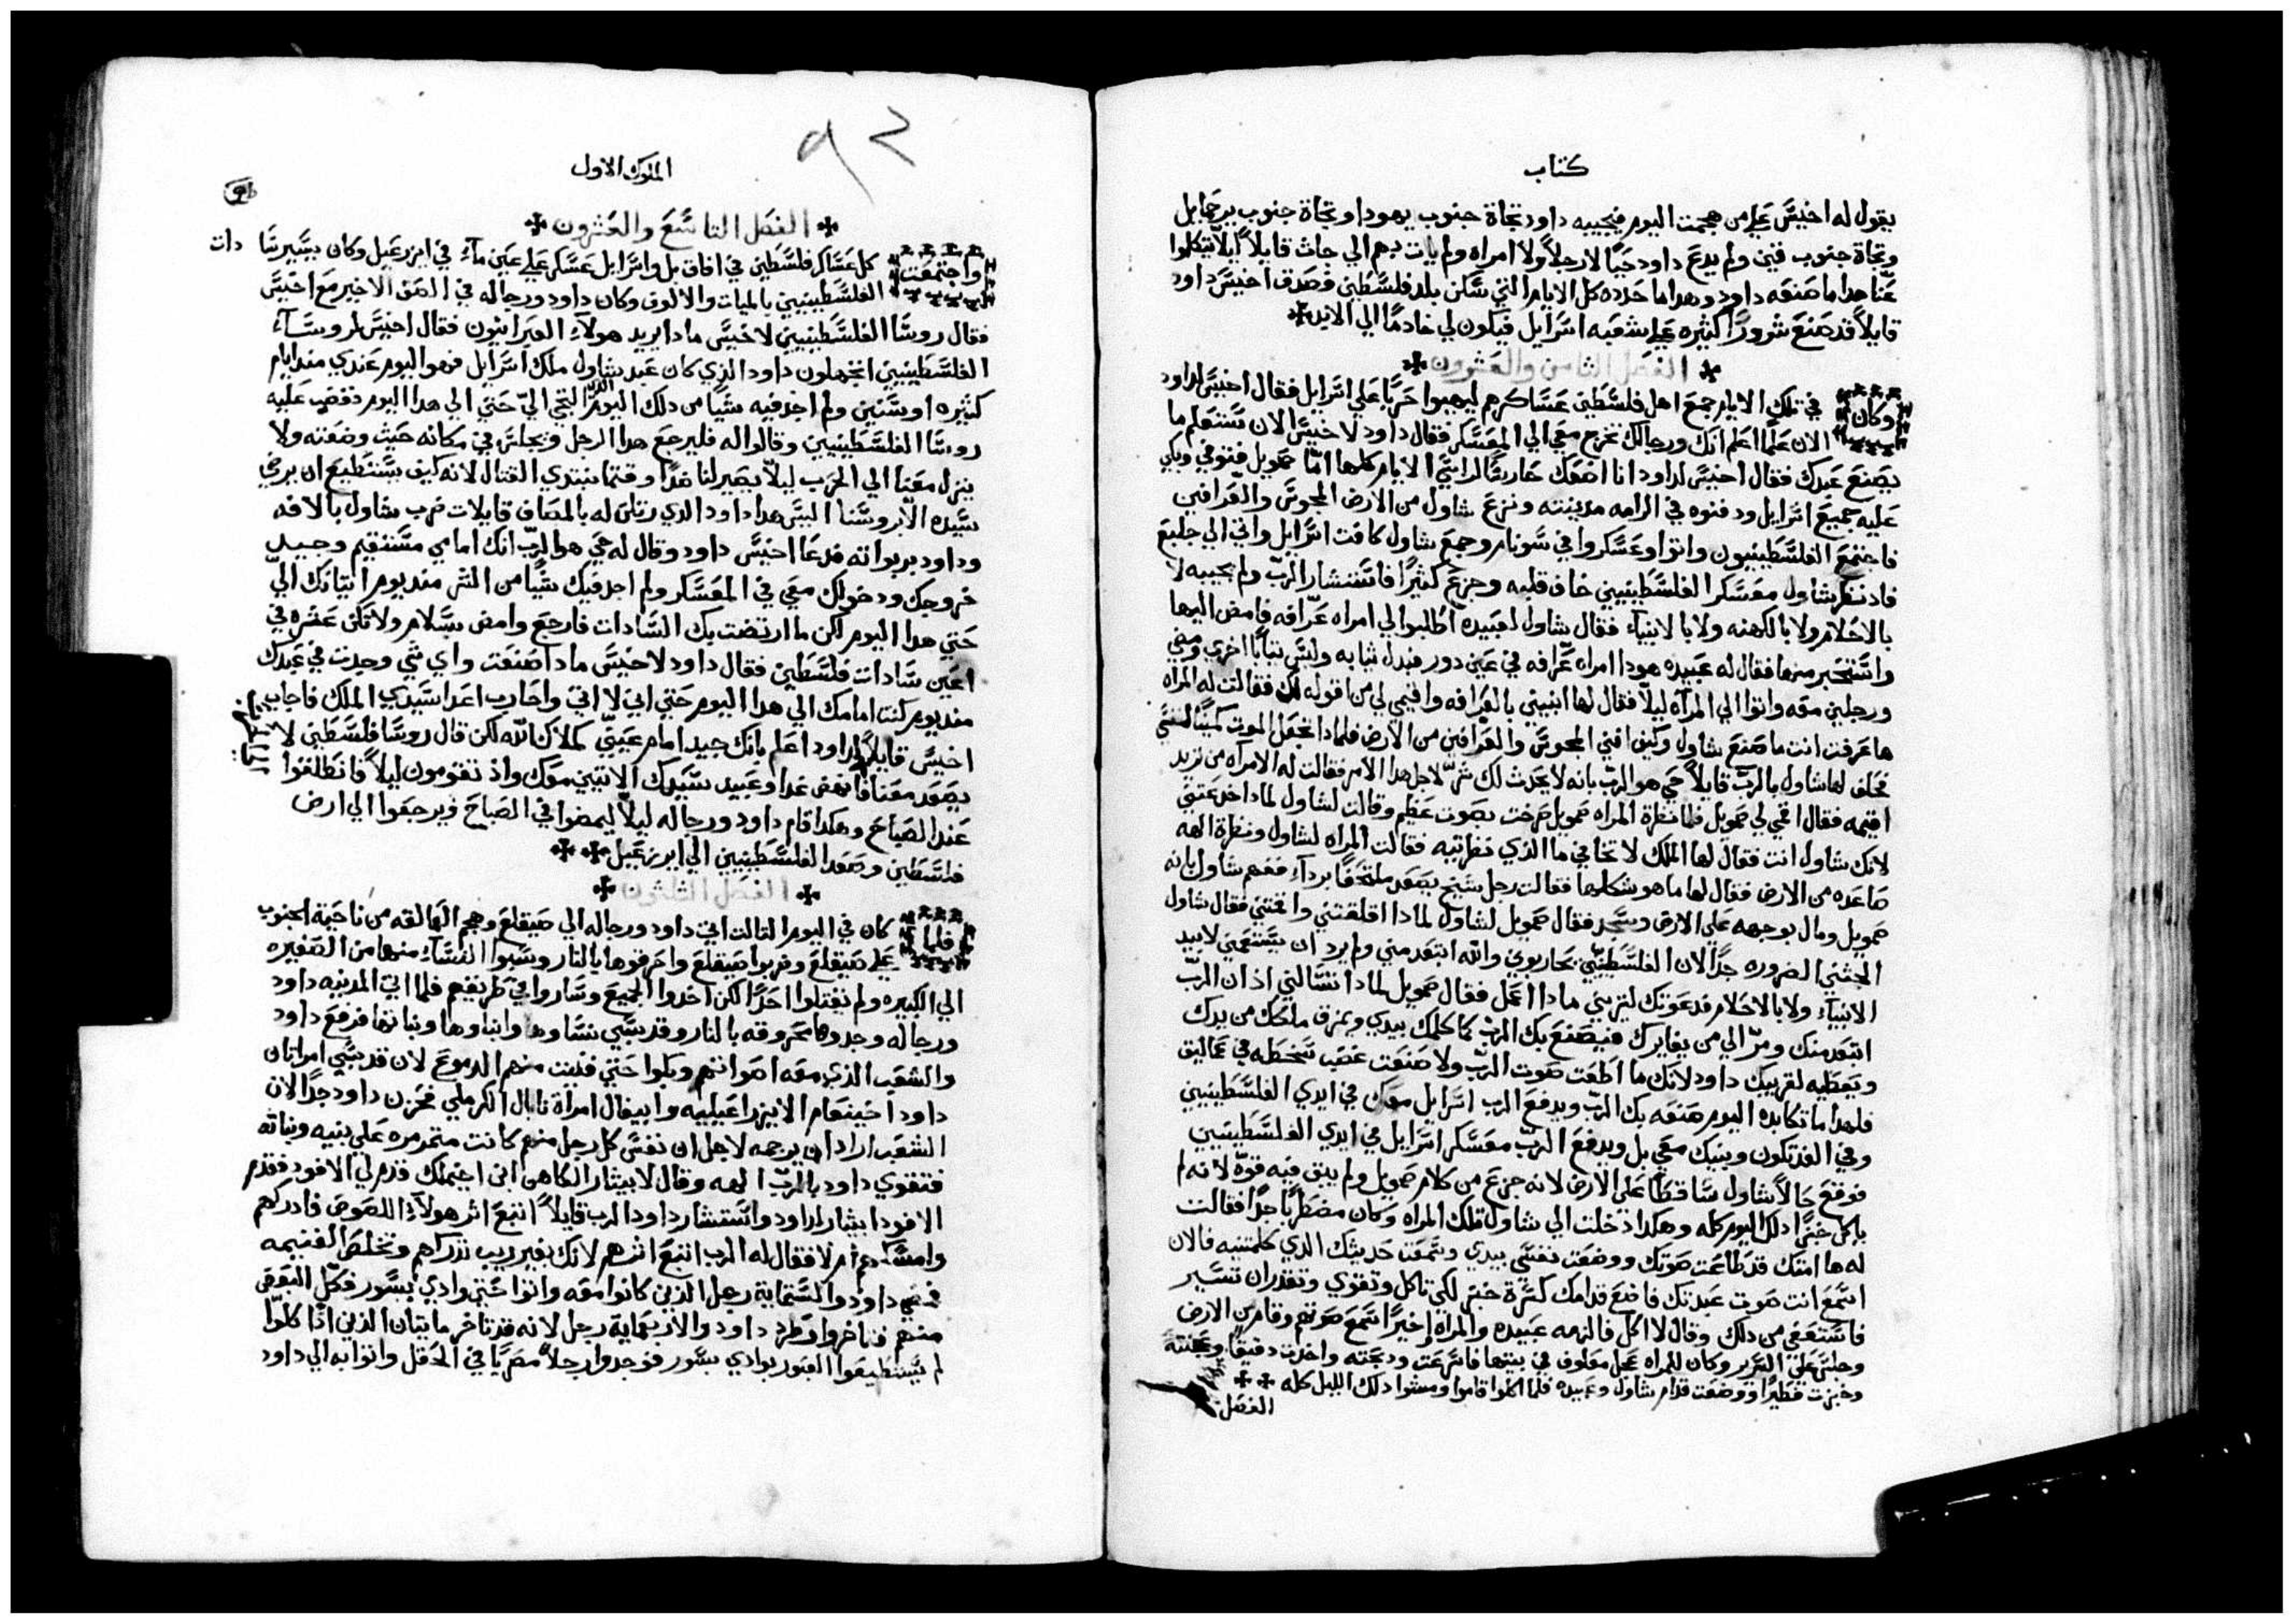 كتاب
يقول له اخيس علي من هجمت اليوم فيجيبه داود تجاة جنوب يهودا وتجاة جنوب يرحمايل
وتجاة جنوب قيني ولم يدع داود حيا لا رجلاً ولا امراه ولم يات بهم الي جاث قايلاً ليلا يتكلموا
عنا هدا ما صنعه داود وهدا ما حدده كل الايام التي سكن بلد فلسطين فصدق اخيس داود
قايلاً قد صنع شروراً كثيره علي شعبه اسرايل فيكون لي خادماً الي الابد
الفصل الثامن والعشرون
وكان في تلك الايام جمع اهل فلسطين عساكرهم ليهيوا حرباً علي اسرايل فقال اخيس لداود
الان علماً اعلم انك ورجالك تخرج معي الي المعسكر فقال داود لاخيس الان ستعلم ما
يصنع عبدك فقال اخيس لداود انا اضعك حارساً لراسي الايام كلها امّا صمويل فتوفي وبكي
عليه جميع اسرايل ودفنوه في الرامه مدينته ونزع شاول من الارض المجوس والعرافين
فاجتمع الفلسطينيون واتوا وعسكروا في سونام وجمع شاول كافت اسرايل واتي الي جلبع
فاد نظر شاول معسكر الفلسطينيين خاف قلبه وجزع كثيراً فاستشار الربّ ولم يجيبه لا
بالاحلام ولا بالكهنه ولا بالانبياء فقال شاول لعبيده اطلبوا لي امراه عرّافه فامض اليها
واستخبر منها فقال له عبيده هودا امراه عرافه في عين دور فبدل ثيابه ولبس ثياباً اخري ومضي
ورجلين معه واتوا الي المرآه ليلاً فقال لها انبيني بالعرافه واقيمي لي من اقوله لك فقالت له المراه
ها عرفت انت ما صنع شاول وكيف افني المجوس والعرافين من الارض فلمادا تجعل الموت كميناً لنفسي
فحلف لها شاول بالربّ قايلاً حي هو الربّ بانه لا يحدث لك شرّ لاجل هدا الامر فقالت له الامرآه من تريد
اقيمه فقال اقمي لي صمويل فلما نظرة المراه صمويل صرخت بصوت عظيم وقالت لشاول لمادا خدعتني
لانك شاول انت فقال لها الملك لا تخافي ما الذي نظرتيه فقالت المراه لشاول ونظرة الهه
صاعده من الارض فقال لها ما هو شكلها فقالت رجل شيخ يصعد ملتحفاً برداء ففهم شاول بانه
صمويل ومال بوجهه علي الارض وسجد فقال صمويل لشاول لمادا اقلقتني واقمتني فقال شاول
الجتني الضروره جداً لان الفلسطيني يحاربوي والله ابتعد مني ولم يرد ان يستمعني لا بيد
الانبياء ولا بالاحلام قد عوتك لتريني مادا اعمل فقال صمويل لمادا تسالني اذ ان الربّ
ابتعد منك ومرّ الي من يغايرك فيصنع بك الربّ كما كلمك بيدي ويمزق ملكك من يدك
ويعطيه لقريبك داود لانك ما اطعت صوت الربّ ولا صنعت غضب سخطه في عماليق
فلهدا ما تكابده اليوم صنعه بك الربّ ويدفع الرب اسرايل معك في ايدي الفلسطينيين
وفي الغد تكون وبنيك معي بل ويدفع الربّ معسكر اسرايل في ايدي الفلسطينيين
فوقع حالاً شاول ساقطاً علي الارض لانه جزع من كلام صمويل ولم يبق فيه قوّه لانه لم
ياكل خبزاً دلك اليوم كله وهكدا دخلت الي شاول تلك المراه وكان مضطرباً جداً فقالت
له ها امتك قد طاعت صوتك ووضعت نفسي بيدي وسمعت حديثك الذي كلمتنيه فالان
اسمع انت صوت عبدتك فاضع قدامك كسرة خبز لكي تاكل وتقوي وتقدر ان تسير
فاستعفي من دلك وقال لا اكل فالزمه عبيده والمراه واخيراً سمع صوتهم وقام من الارض
وجلس علي السرير وكان للمراه عجل معلوف في بيتها فاسرعت ودبحته واخذت دقيقاً وعجنته
وخبزت فطيراً ووضعت قدام شاول وعبيده فلما اكلوا قاموا ومشوا دلك الليل كله
الفصل
الملوك الاول
٩٢
الفصل التاسع والعشرون
واجتمعت كل عساكر فلسطين في افاق بل واسرايل عسكر علي عين ماء في ايزرعيل وكان يسير سا دات
الفلسطينيين بالميات والالوف وكان داود ورجاله في الصف الاخير مع اخيس
فقال روسا الفلسطينيين لاخيس مادا يريد هولاء العبرانيون فقال اخيس لروساء
الفلسطينيين اتجهلون داود الذي كان عبد شاول ملك اسرايل فهو اليوم عندي مند ايام
كثيره او سنين ولم اجد فيه شيا من دلك اليوم الذي التجي اليّ حتي الي هدا اليوم فغضب عليه
روسا الفلسطينيين وقالوا له فليرجع هدا الرجل ويجلس في مكانه حيث وضعته ولا
ينزل معنا الي الحرب ليلاّ يصير لنا ضداً وقتما نبتدي القتال لانه كيف يستطيع ان يرضي
سيده الا بروسنا اليس هدا داود الذي رتلن له بالمصاف قايلات ضرب شاول بالافه
وداود بربواته فدعا اخيس داود وقال له حي هو الربّ انك امامي مستقيم وجيد
خروجك ودخولك معي في المعسكر ولم اجد فيك شياً من الشر مند يوم اتيانك اليّ
حتي هدا اليوم لكن ما ارتضت بك السادات فارجع وامض بسلام ولا تكن عشره في
اعين سادات فلسطين فقال داود لاخيس مادا صنعت واي شي وجدت في عبدك
مند يوم كنت امامك الي هدا اليوم حتي اني لا اتي واحارب اعدا سيدي الملك فاجاب
اخيس قايلاً لداود اعلم بانك جيد امام عينيّ كملاك الله لكن قال روسا فلسطين لا
يصعد معنا فانهض غدا وعبيد سيدك الاتيين معك واذ تقومون ليلاً فانطلقوا
عند الصباح وهكدا قام داود ورجاله ليلاً ليمضوا في الصباح ويرجعوا الي ارض
فلسطين وصعد الفلسطينيين الي ايزرعيل
الفصل الثلثون
فلما كان في اليوم الثالث اتي داود ورجاله الي صيقلع وهجم العمالقه من ناحية الجنوب
علي صيقلع وضربوا صيقلع واحرقوها بالنار وسبوا النساء منها من الصغيره
الي الكبيره ولم يقتلوا احداً لكن اخدوا الجميع وساروا في طريقهم فلما اتي المدينه داود
ورجاله وجدوها محروقه بالنار وقد سبي نساوها وابناوها وبناتها فرفع داود
والشعب الذي معه اصواتهم وبكوا حتي فنيت منهم الدموع لان قد سبي امراتان
داود اخينعام الايزراعيليه وابيغال امرأة نابال الكرملي فحزن داود جداً لان
الشعب اراد ان يرجمه لاجل ان نفس كل رجل منهم كانت متمرمره علي بنيه وبناته
فتقوي داود بالربّ الهه وقال لابيثار الكاهن ابن اخيملك قدم لي الافود فقدم
الافود ابيثار لداود واستشار داود الرب قايلاً اتبع اثر هولاء اللصوص فادركهم
وامسكهم ام لا فقال له الرب اتبع اثرهم لانك بغير ريب تدركهم وتخلص الغنيمه
فمضي داود والستماية رجل الذين كانوا معه واتوا حتي وادي بسور فكلّ البعض
منهم فتاخروا وطرد داود والاربعماية رجل لانه قد تاخر مايتان الذين اذا كلوا
لم يستطيعوا العبور بوادي بسور فوجدوا رجلاً مصرياً في الحقل واتوا به الي داود